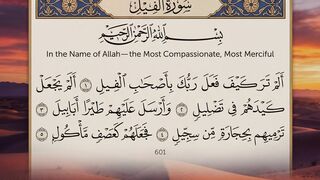 سُورَةُ الفِيلِ
بِسْمِ اللَّهِ الرَّحْمَٰنِ الرَّحِيمِ
In the Name of Allah—the Most Compassionate, Most Merciful
أَلَمْ تَرَ كَيْفَ فَعَلَ رَبُّكَ بِأَصْحَٰبِ الْفِيلِ ١ أَلَمْ يَجْعَلْ
كَيْدَهُمْ فِي تَضْلِيلٍ ٢ وَأَرْسَلَ عَلَيْهِمْ طَيْرًا أَبَابِيلَ ٣
تَرْمِيهِم بِحِجَارَةٍ مِّن سِجِّيلٍ ٤ فَجَعَلَهُمْ كَعَصْفٍ مَّأْكُولٍ ٥
601